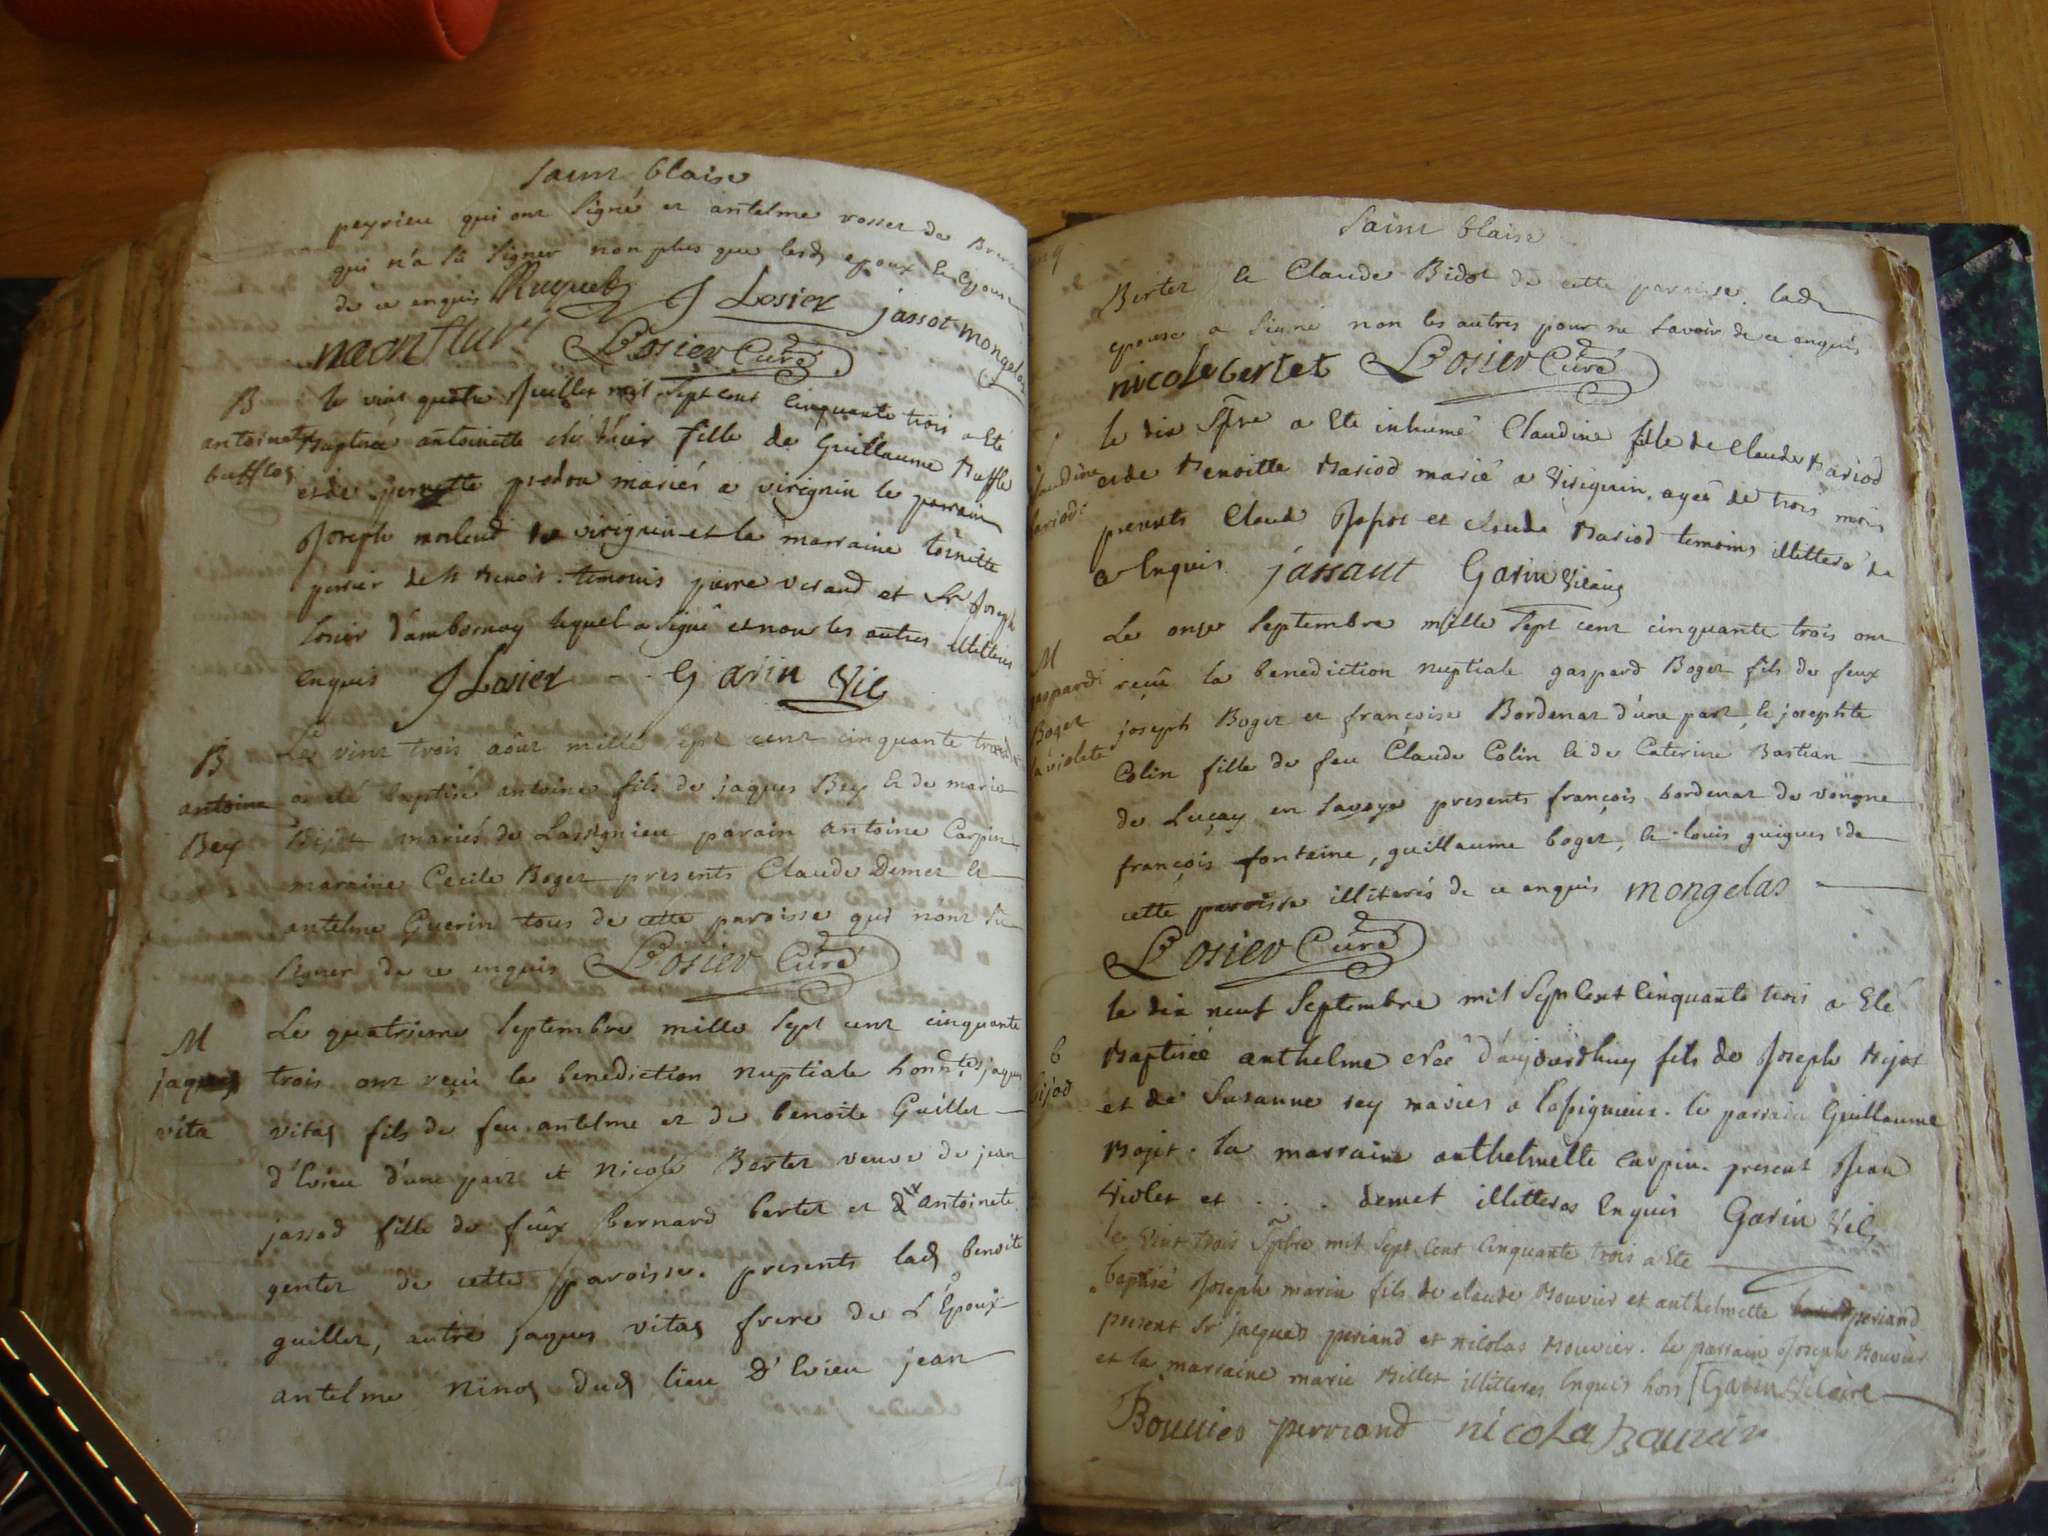 saint blaise
peyrieu qui ont signé et antelme rosset de
qui n'a sû signer non plus que lesd epoux le epouse
de ce enquis Ruquet J Losier jassot mongelas
Losier Curé
B
antoinete
bufflos
le vint quatre Juillet mil sept cent cinquante trois a Eté
Baptisée antoinette fille de Guillaume Buffle
et de pernette prodon mariés a virignin le parrain
Joseph de virignin et la marraine toinette
perrier de st benois. temoins pierre veraud et Sr Joseph
losier d'ambornay lequel a signé et non les autres illitterés
enquis J Losier Garin Vic
B
antoine
Bey
Le vint trois aôut mille sept cent cinquante trois
a eté baptisé antoine fils de jaques Bey & de marie
Bijot mariés de Lassignieu parain antoine Carpin
maraine Cecile Boget presents Claude Demet &
antelme Guerin tous de cette paroisse qui n'ont sû
signer de ce enquis Losier Curé
M
jaques
vita
Le quatrieme septembre mille sept cent cinquante
trois ont reçu la benediction nuptiale honn.tes jaques
vitas fils de feu antelme et de benoite Guillet
d'Evieu d'une part et Nicole Bertet veuve de jean
jassod fille de feûx bernard bertet et d' antoinete
gentet de cette paroisse. presents lad benoite
guillet, autre jaques vitas frere de L'Epoux
antelme Ninos dud lieu d'Evieu jean
saint blaise
Bertet & Claude Bidot de cette paroisse. lad
epouse a signé non les autres pour ne savoir de ce enquis
nicole bertet Losier Curé
Claudine
bariod
le dix 7bre a Eté inhumé Claudine fille de claude Bariod
et de Benoitte Bariod marié a Virignin, ageé de trois mois
presents Claude Japot et claude Bariod temoins illitteré de
ce Enquis jassaut Garin Vicaire
M
gaspard
Boget
la violete
Le onze septembre mille sept cent cinquante trois ont
reçû la benediction nuptiale gaspard Boget fils de feux
joseph Boget et françoise Bordenat d'une part, & josephte
Colin fille de feu Claude Colin & de Caterine Bastian
de Luçay en Savoye presents françois bordenat de vongne
françois fontaine, guillaume boget, & louis guigues de
cette paroisse illiterés de ce enquis mongelas
Losier Curé
b
bijod
le dix neuf Septembre mil Sept Cent Cinquante trois a Eté
Baptiseé anthelme neé d'aujourdhuy fils de Joseph Bijot
et de Susanne rey mariés a lassignieux. le parrain Guillaume
Bojet. la marraine anthelmette carpin. present Jean
Violet et . . . . demet illitteres Enquis Garin Vic
le Vint trois 7bre mil Sept Cent Cinquante trois a Eté
baptisé Joseph marin fils de claude Bouvier et anthelmette periand
present Sr jacques periand et nicolas Bouvier. le parrain Joseph Bouvier
et la marraine marie Billet illitteres Enquis hors Garin Vicaire
Bouvier perriand nicola bauvir